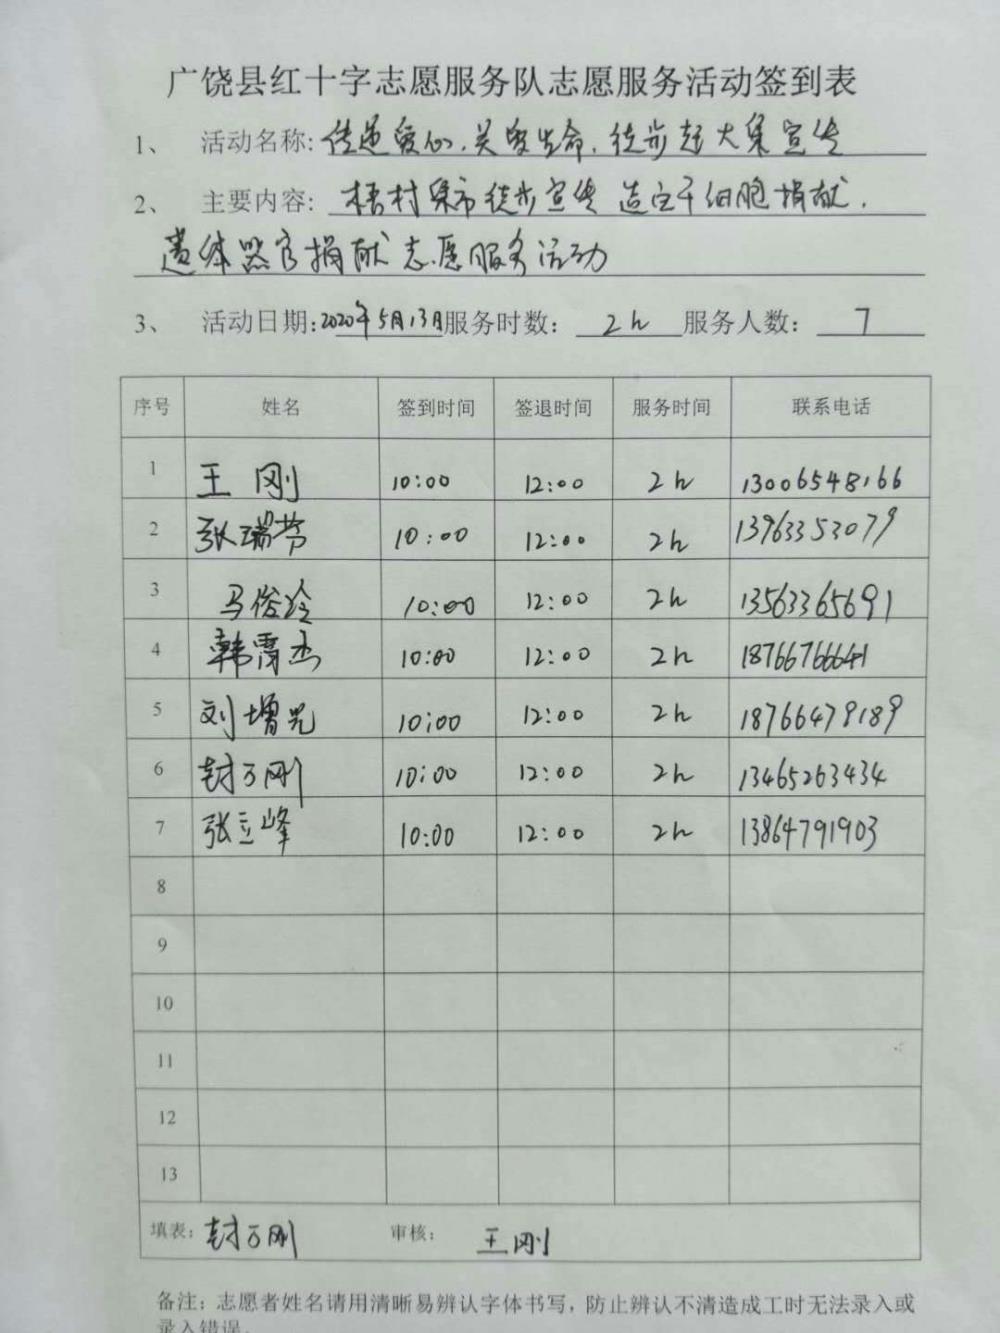 广饶县红十字志愿服务队志愿服务活动签到表
1、 活动名称: 传递爱心,关爱生命,徒步赶大集宣传
2、 主要内容: 梧村集市徒步宣传 造血干细胞捐献,
遗体器官捐献志愿服务活动
3、 活动日期: 2020年5月13日 服务时数: 2h 服务人数: 7
序号 姓名 签到时间 签退时间 服务时间 联系电话
1 王刚 10:00 12:00 2h 13006548166
2 张瑞芳 10:00 12:00 2h 13963353079
3 马俊玲 10:00 12:00 2h 13563365691
4 韩霄杰 10:00 12:00 2h 18766766641
5 刘增光 10:00 12:00 2h 18766479189
6 封万刚 10:00 12:00 2h 13465263434
7 张立峰 10:00 12:00 2h 13864791903
8
9
10
11
12
13
填表: 封万刚 审核: 王刚
备注: 志愿者姓名请用清晰易辨认字体书写,防止辨认不清造成工时无法录入或
录入错误。